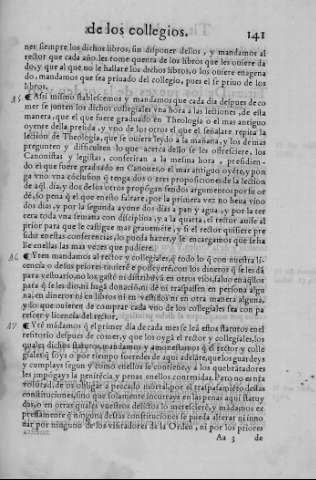 de los collegios. 141
nes siempre los dichos libros, sin disponer dellos, y mandamos al
rector que cada año les tome quenta de los libros que les ouiere da
do, y que al que no le hallare los dichos libros, o los ouiere enagena
do, mandamos que sea priuado del collegio, pues el se priuo de los
libros.
¶ Assi mismo establescemos y mandamos que cada dia despues de co
mer se junten los dichos collegiales vna hora a las lectiones, de esta
manera, que el que fuere graduado en Theologia o el mas antiguo
oyente della presida, y vno de los otros el que el señalare repita la
lection de Theologia, que se ouiere leydo a la mañana, y los demas
pregunten y disputen lo que acerca dello se les offresciere. los
Canonistas y legistas, conferiran a la mesma hora, presidien-
do el que fuere graduado en Canones, o el mas antiguo oyẽte, y pon
ga vno vna cõclusiõ q̃ tenga dos o tres proposiciones de la lection
de aq̃l dia, y dos de los otros propõgan sendos argumentos por su or
dẽ, so pena q̃ el que en esto faltare, por la primera vez no beua vino
dos dias, y por la segunda ayune dos dias a pan y agua, y por la ter
cera toda vna semana con disciplina, y a la quarta, el rector auise al
prior para que le castigue mas grauemẽte, y si el rector quisiere pre
sidir en estas conferencias, lo pueda hazer, y le encargamos que se ha
lle en ellas las mas vezes que pudiere.
¶ Yten mandamos al rector y collegiales, q̃ todo lo q̃ con nuestra li-
cencia o de sus priores tuuierẽ
para q̃ se les dio ni hagã donaciõ, ni dẽ ni traspassen en persona algu
na, en dineros ni en libros ni en vestidos ni en otra manera alguna,
y los que ouieren de comprar cada vno de los collegiales sea con pa
rescer y licencia del rector.
¶ Ytẽ mãdamos q̃ el primer dia de cada mes se leã estos statutos en el
refitorio despues de comer, y que los oyga el rector y collegiales, los
quales dichos statutos, mandamos y amonestamos q̃ el rector y colle
giales q̃ soys o por tiempo fueredes de aqui adelãte, que los guardeys
y cumplays segun y como en ellos se contiene, y a los quebrãtadores
les impõgays la penitẽcia y penas en ellos contenidas. Pero no es nr̃a
volũtad, de os obligar a peccado mortal, por el traspasamiẽto destas
constituciones, sino que solamente incurrays en las penas aqui statuy
das, o en otras quales vuestros delictos lo meresciere, y mãdamos ex
pressamente q̃ ninguna destas constituciones se pueda alterar ni inno
uar por ninguno de los visitadores de la Orden, ni por los priores
Aa 3 de